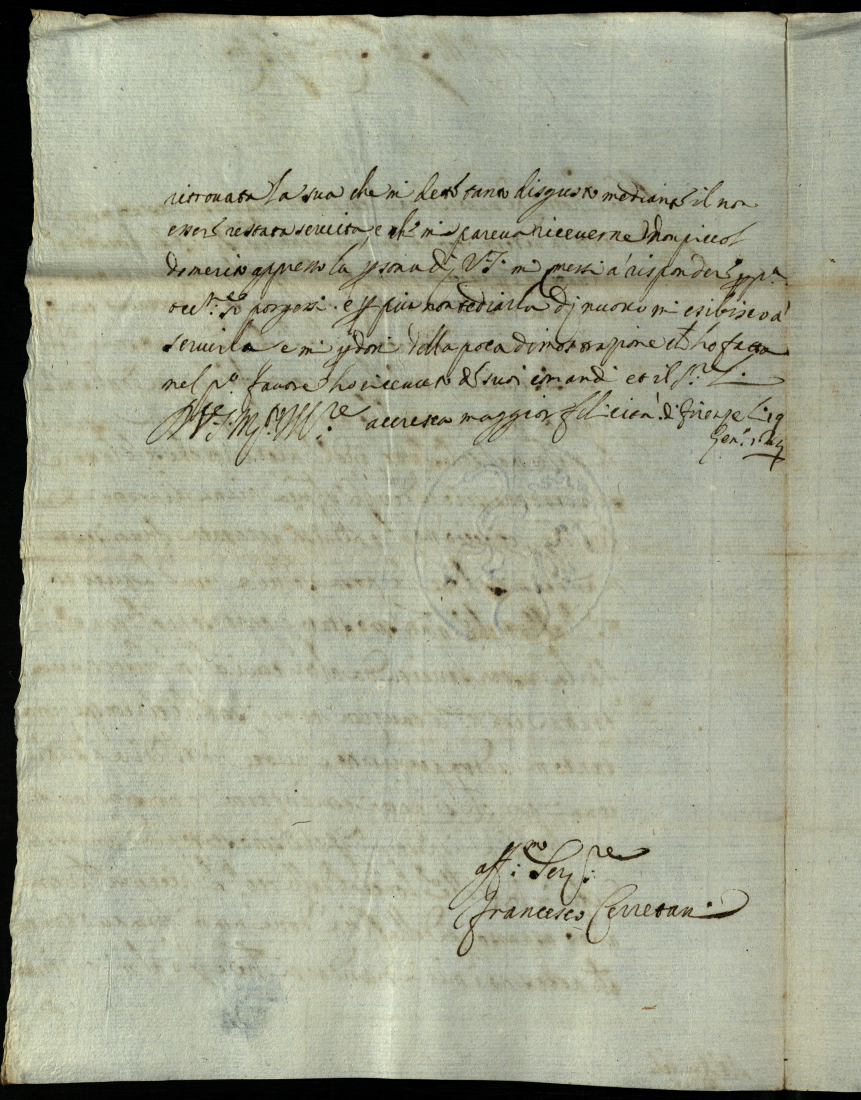 ritrovata la sua che mi dette tanto disgusto mediante il non
essere restata servita e che mi pareva riceverne non piccol
demerito appresso la psona di V.S. mi messi à risponder
porgersi e p più non tediarla di nuovo mi esibisco à
servirla e mi pdoni della poca dimostrazione ch ho fatta
nel po favore ho ricevuto de suoi comandi et il Sr
accresca maggior felicita di Firenze li 19
Genn.
aff:mo Ser:re
Francesco Cerretani